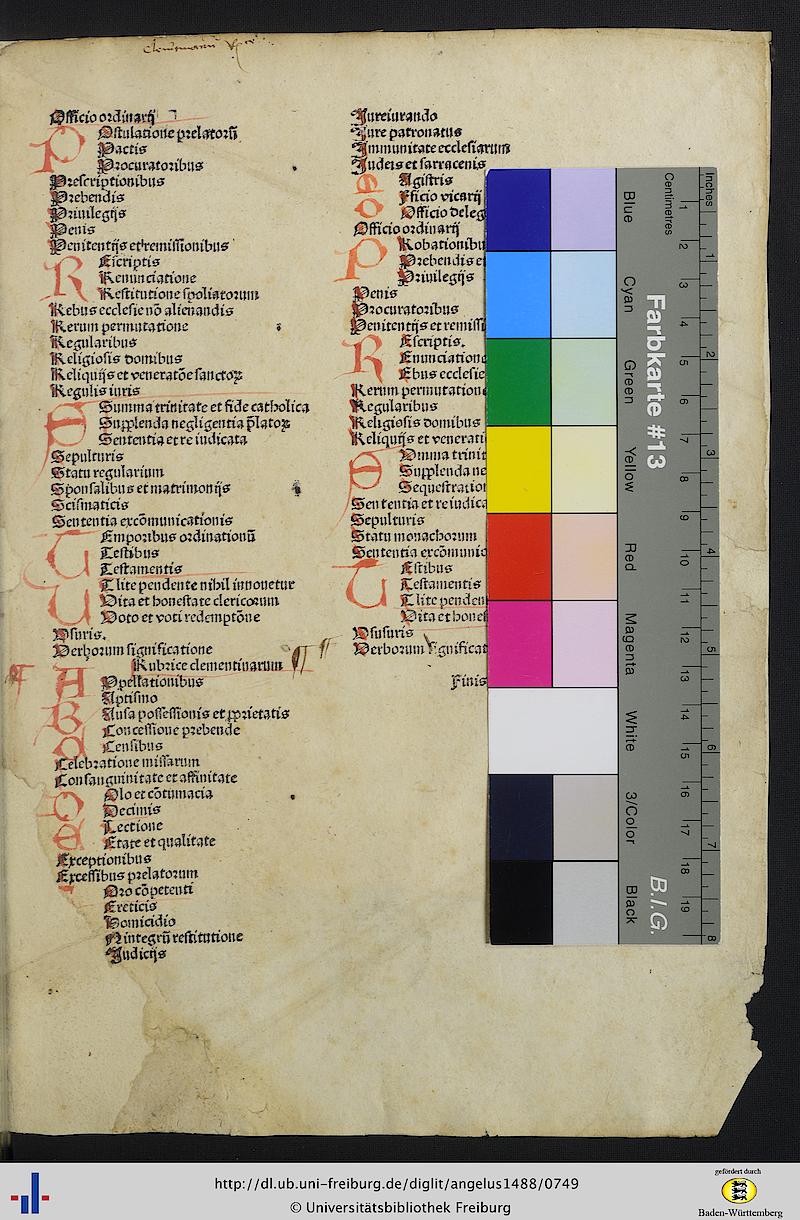 Officio ordinarij
Ostulatione prelatorū
Pactis
Procuratoribus
Prescriptionibus
Prebendis
Priuilegijs
Penis
Penitentijs et remissionibus
Escriptis
Renunciatione
Restitutione spoliatorum
Rebus ecclesie nō alienandis
Rerum permutatione
Regularibus
Religiosis domibus
Reliquijs et veneratōe sanctoꝝ
Regulis iuris
Summa trinitate et fide catholica
Supplenda negligentia p̄latoꝝ
Sententia et re iudicata
Sepulturis
Statu regularium
Sponsalibus et matrimonijs
Scismaticis
Sententia excōmunicationis
Emporibus ordinationū
Testibus
Testamentis
T lite pendente nihil innouetur
Vita et honestate clericorum
Voto et voti redemptōne
Vsuris.
Verborum significatione
Rubrice clementinarum
Ppellationibus
Aptismo
Ausa possessionis et ꝓprietatis
Concessione prebende
Censibus
Celebratione missarum
Consanguinitate et affinitate
Olo et cōtumacia
Decimis
Lectione
Etate et qualitate
Exceptionibus
Excessibus prelatorum
Oro cōpetenti
Ereticis
Homicidio
N integrū restitutione
Judicijs
Jureiurando
Jure patronatus
Immunitate ecclesiarum
Judeis et sarracenis
Agistris
Fficio vicarij
Officio deleg
Officio ordinarij
Robationibu
Prebendis e
Priuilegijs
Penis
Procuratoribus
Penitentijs et remissi
Escriptis.
Enunciatione
Ebus ecclesie
Rerum permutation
Regularibus
Religiosis domibus
Reliquijs et venerati
Umma trinit
Supplenda ne
Sequestration
Sententia et re iudica
Sepulturis
Statu monachorum
Sententia excōmunic
Estibus
Testamentis
T lite penden
Vita et honest
Vsusuris
Verborum significat
Finis
Blue
Cyan
Green
Yellow
Red
Magenta
White
3/Color
Black
Farbkarte #13
B.I.G.
Centimetres
1 2 3 4 5 6 7 8 9 10 11 12 13 14 15 16 17 18 19
Inches
1 2 3 4 5 6 7 8
http://dl.ub.uni-freiburg.de/diglit/angelus1488/0749
© Universitätsbibliothek Freiburg
gefördert durch
Baden-Württemberg